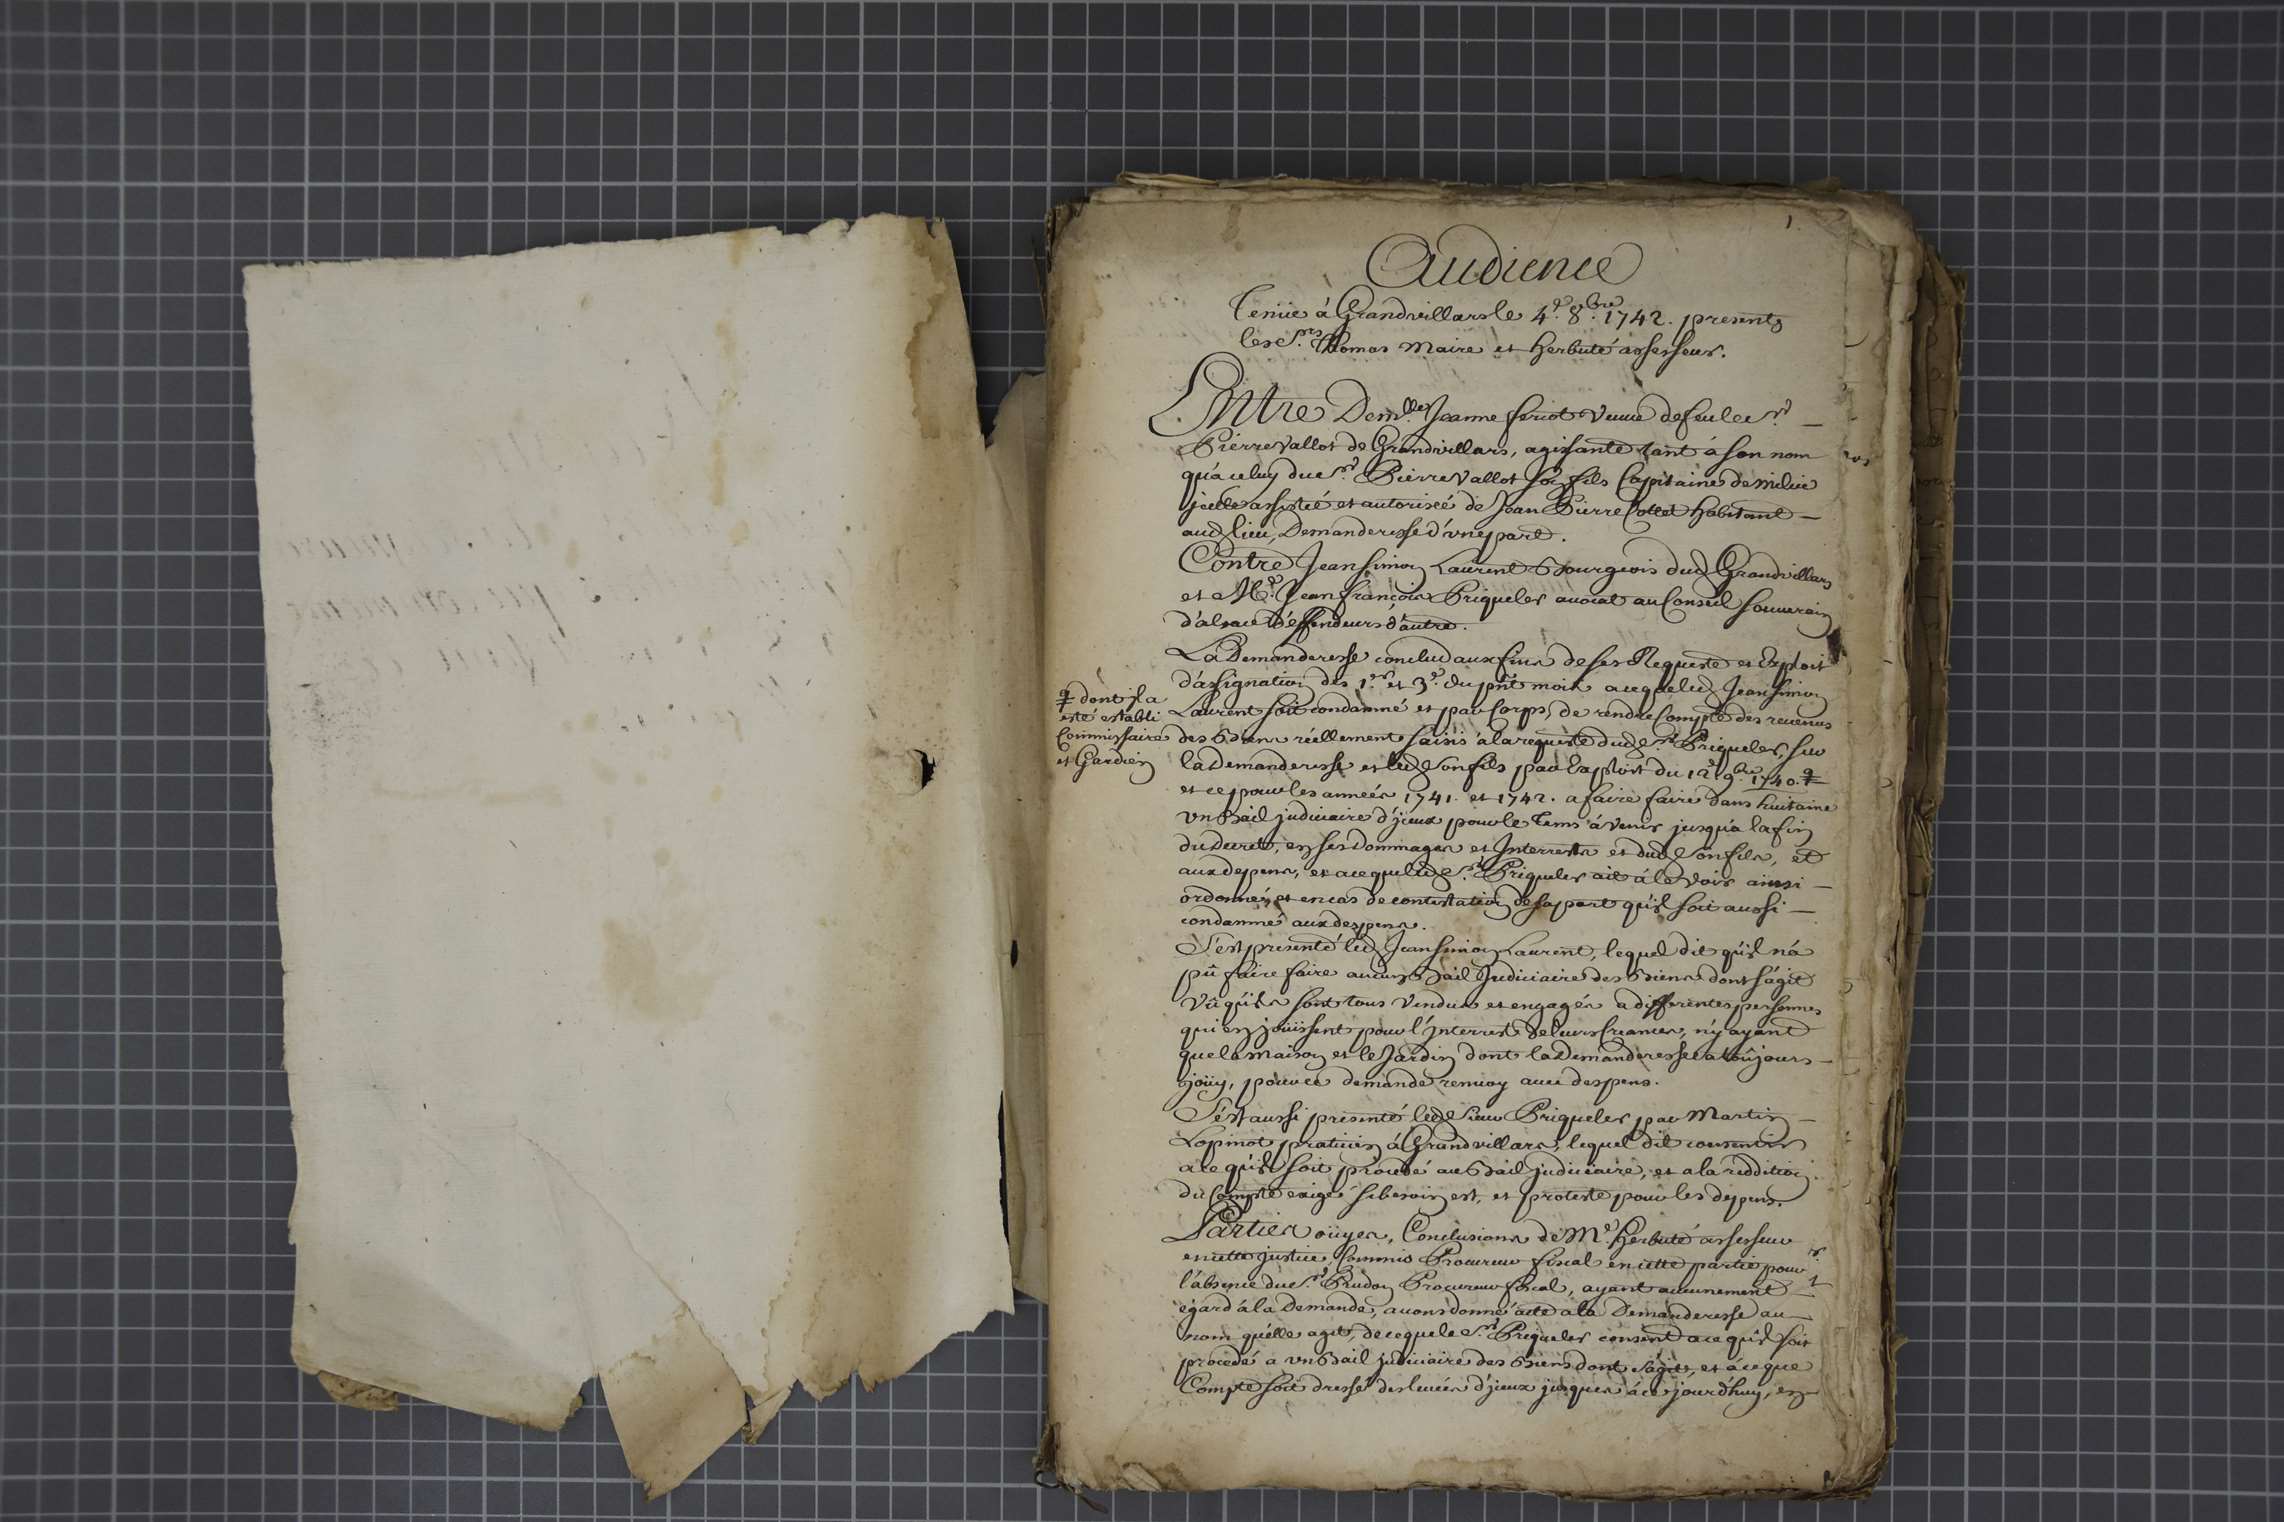 1.
Audience
Tenüe à Grandvillars le 4.e 8.bre 1742. presents
les S.rs Thomas Maire et Herbuté assesseurs.
Entre Dem.lle Jeanne feriot veuve de feu le S.r
Pierre Vallot de Grandvillars, agissante tant á son nom
qu'a celuy du S.r Pierre Vallot son fils Capitaine de milice
jcelle assistée et autorisée de Jean Pierre Cottet habitant
aud. lieu, Demanderesse d'une part.
Contre Jean Simon Laurent Bourgeois dud. Grandvillars
et M.e Jean François Priqueler avocat au Conseil souverain
d'alsace Deffendeurs d'autre.
La Demanderesse conclud aux fins de ses Requeste et Exploit
d'assignation des 1.er et 3.e du pnt mois a ce que led. Jean Simon
Laurent soit condamné et par Corps, de rendre Compte des revenus
des Biens réellement saisis á la requeste dud. S.r Priqueler, sur
la Demanderesse et led. son fils par Exploit du 12.e 9.bre 1740. ꝗ
ꝗ dont jl a
esté establi
Commissaire
et Gardien
et ce pour les années 1741. et 1742. a faire faire dans huitaine
un Bail judiciaire d'jceux pour le tems á venir jusqu'a la fin
du Decret, en ses Dommages et Interrests et dud. son fils, et
aux depens, et a ce que led. S.r Priqueler ait á le voir ainsi
ordonner, et en cas de contestation de sa part qu'il soit aussi
condamné aux despens.
S'est presenté led. Jean Simon Laurent, lequel dit qu'il n'a
pû faire faire aucun Bail Judiciaire des Biens dont s'agit
vû qu'ils sont tous vendus et engagés a differentes personnes
qui en joüissent pour l'jnterrest de leurs creances, n'y ayant
que la maison et le Jardin dont la Demanderesse a toûjours
joüy, pour ce demande renvoy avec despens.
S'est aussi presenté led. Sieur Priqueler par Martin
Lopinot praticien á Grandvillars, lequel dit consentir
a ce qu'il soit procedé au Bail judiciaire, et a la reddition
du Compte exigé si besoin est, et proteste pour les depens.
Parties oüyes, Conclusions de M.e Herbuté assesseur
en cette justice, Commis Procureur fiscal en cette partie pour
l'absence du S.r Prudon Procureur fiscal, ayant aucunement
égard á la Demande, avons donné acte a la Demanderesse au
nom qu'elle agit, de ce que le S.r Priqueler consent a ce qu'il soit
procedé a un Bail judiciaire des Biens dont s'agit, et á ce que
Compte soit dressé des levées d'jceux jusques á ce jourd'huy, en